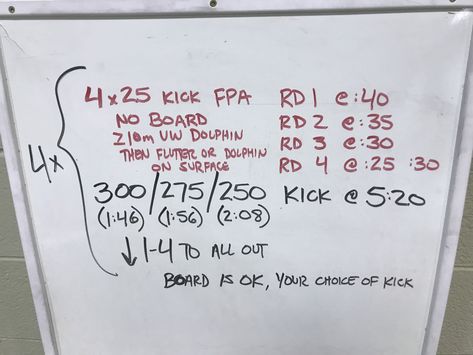 4x
4x25 KICK FPA RD 1 @ :40
NO BOARD RD 2 @ :35
210m UW DOLPHIN RD 3 @ :30
THEN FLUTTER OR DOLPHIN RD 4 @ :25 :30
ON SURFACE
300/275/250 KICK @ 5:20
(1:46) (1:56) (2:08)
↓ 1-4 TO ALL OUT
BOARD IS OK, YOUR CHOICE OF KICK